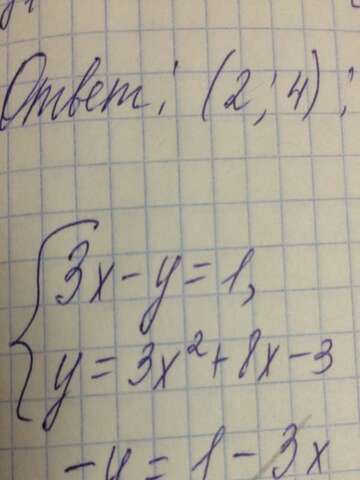 Ответ: (2; 4);
3x - y = 1,
y = 3x² + 8x - 3
-y = 1 - 3x